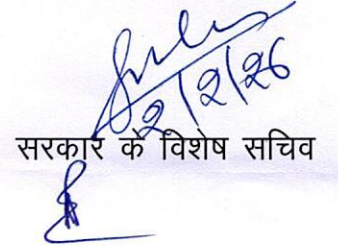 2/2/26
सरकार के विशेष सचिव